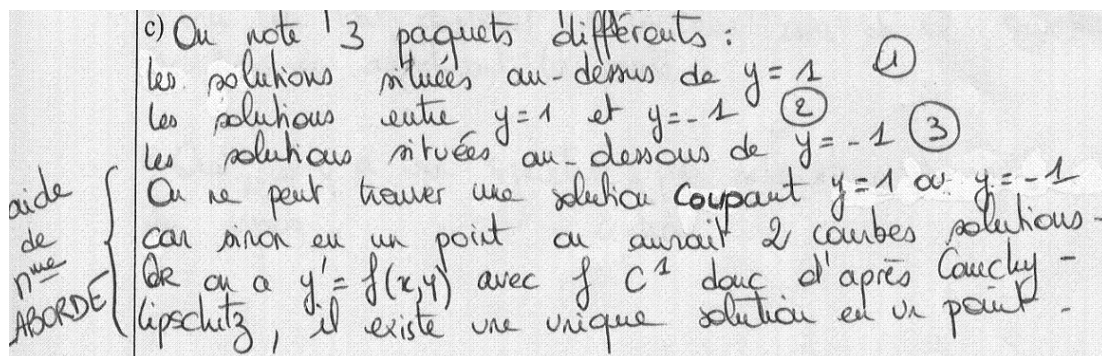 c) On note 3 paquets différents :
les solutions situées au-dessus de y = 1 ①
les solutions entre y = 1 et y = -1 ②
les solutions situées au-dessous de y = -1 ③
On ne peut trouver une solution coupant y = 1 ou y = -1
car sinon en un point on aurait 2 courbes solutions -
OR on a y' = f(x,y) avec f C¹ donc d'après Cauchy -
Lipschitz, il existe une unique solution en un point -
aide
de
nme
ABORDE